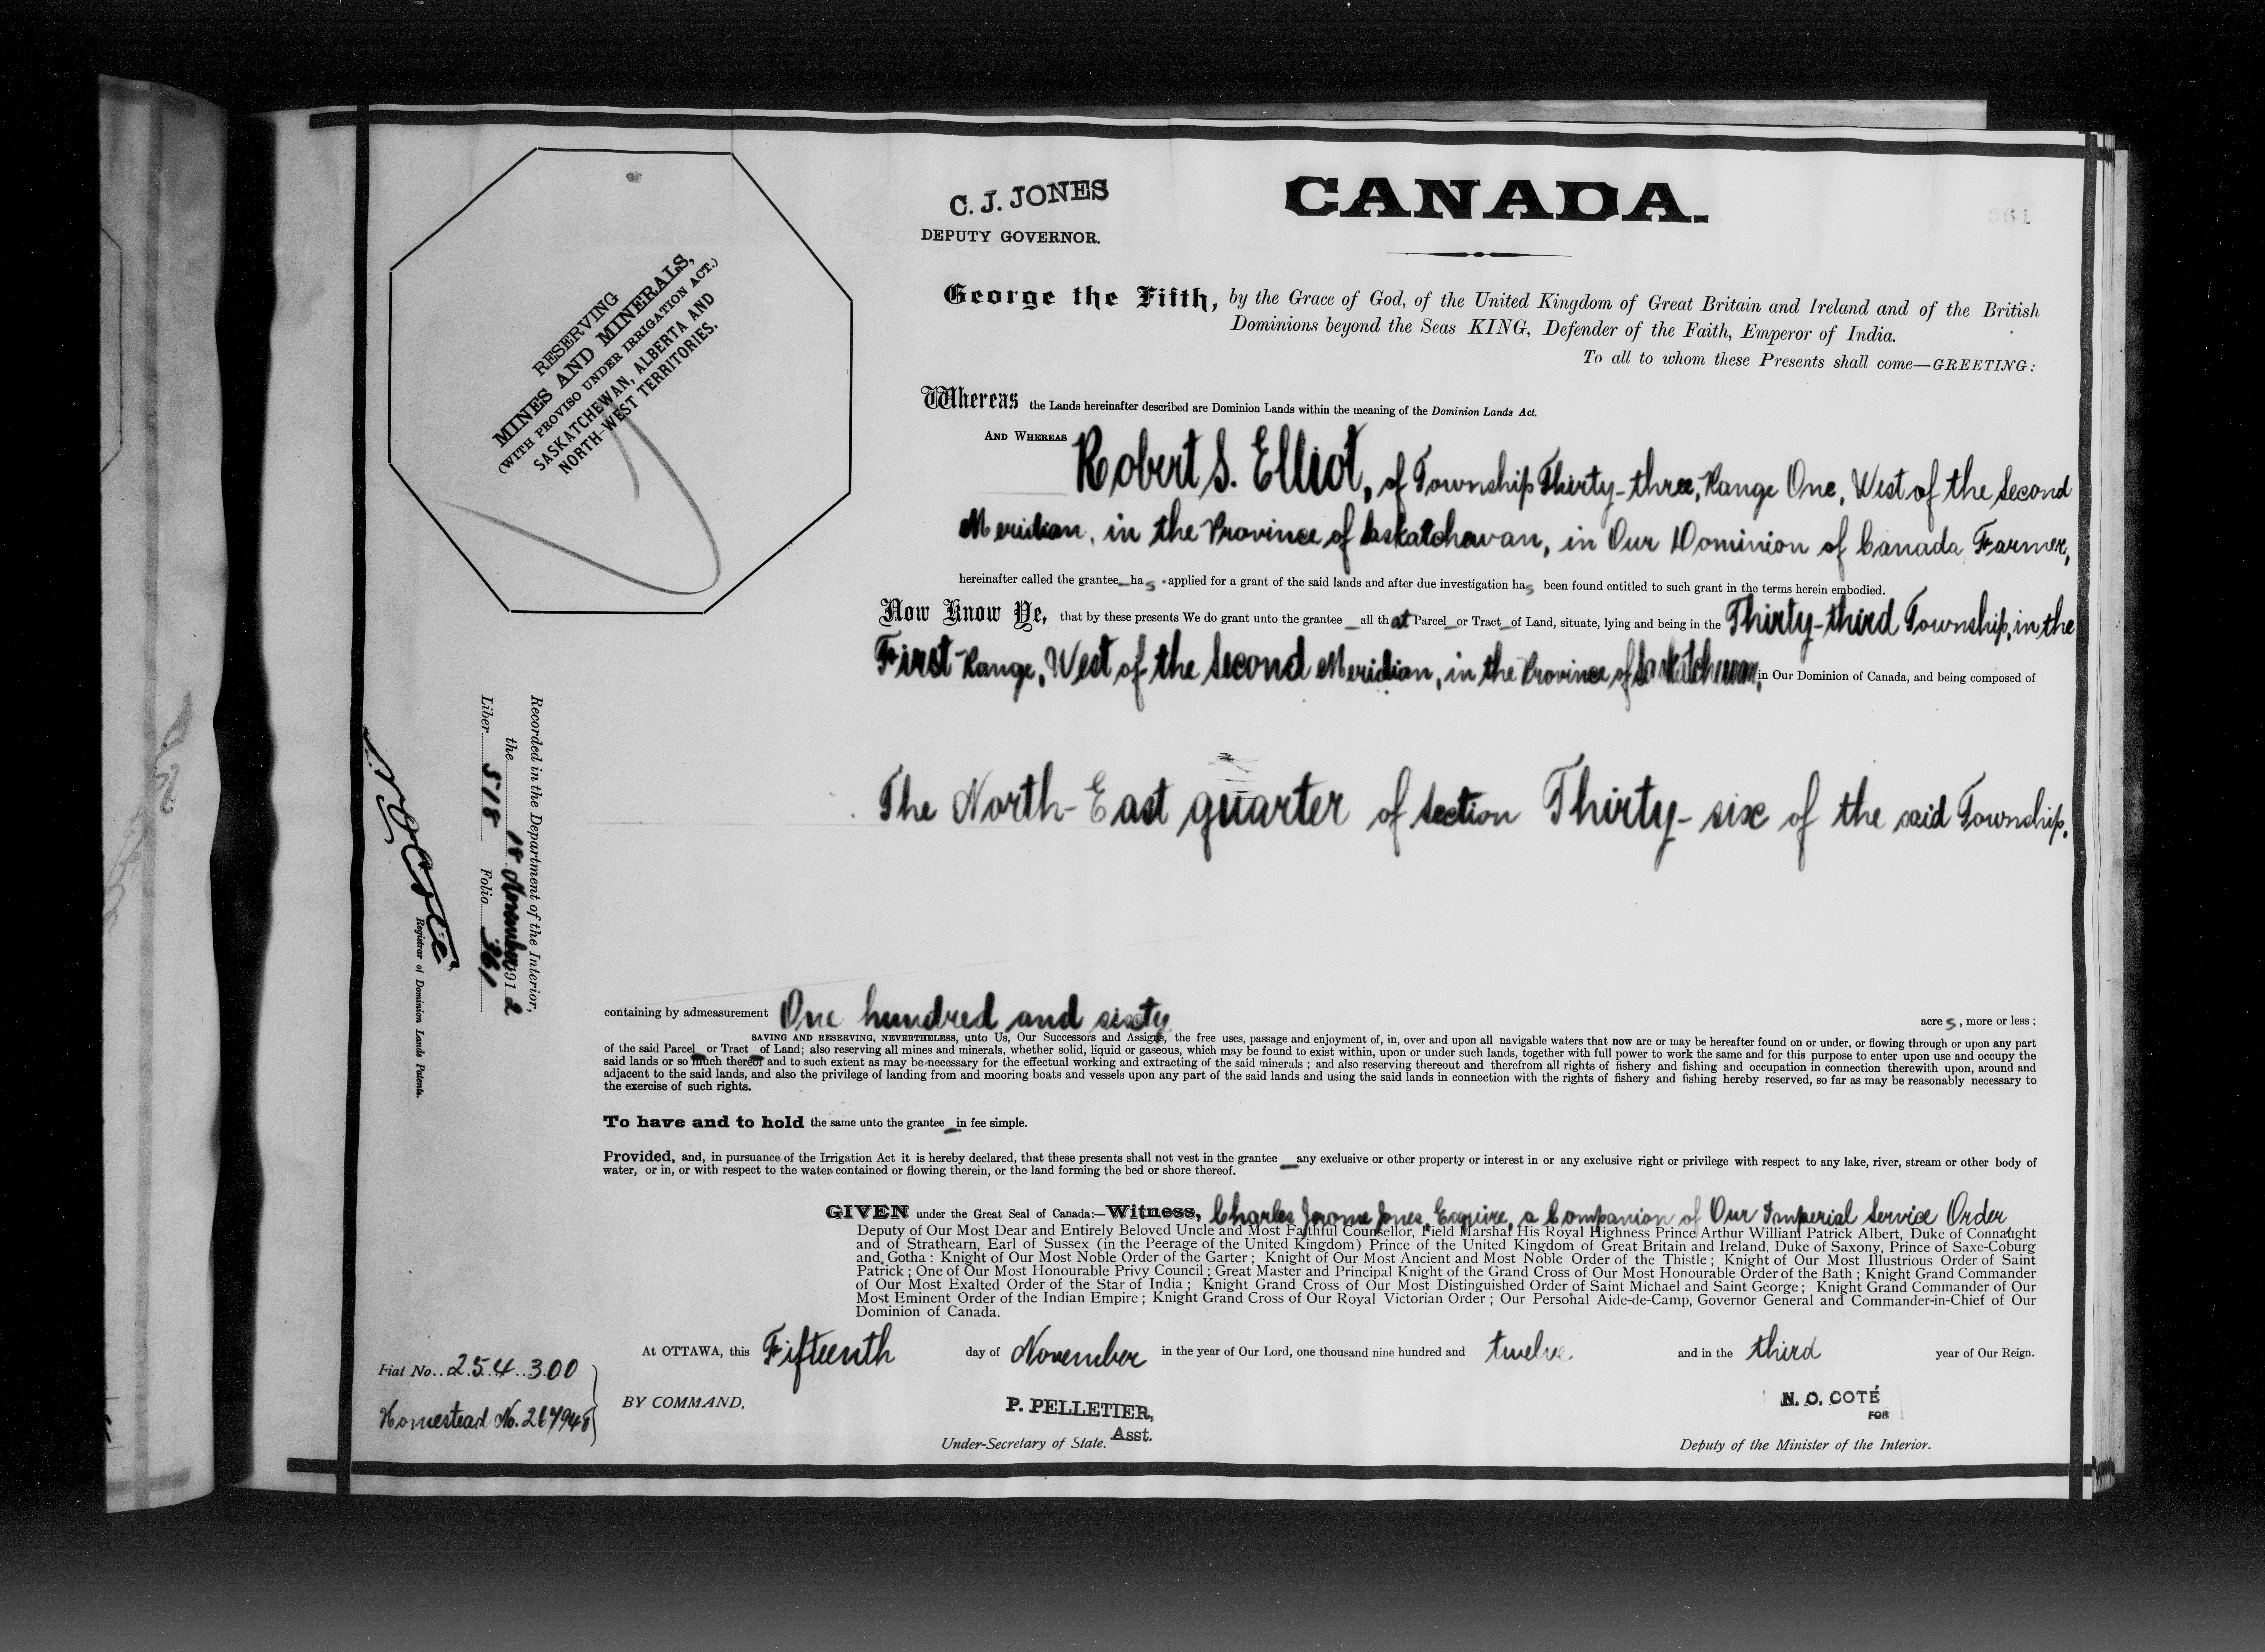 C. J. JONES
DEPUTY GOVERNOR.
CANADA.
361
RESERVING
MINES AND MINERALS,
(WITH PROVISO UNDER IRRIGATION ACT.)
SASKATCHEWAN, ALBERTA AND
NORTH-WEST TERRITORIES.
George the Fifth, by the Grace of God, of the United Kingdom of Great Britain and Ireland and of the British
Dominions beyond the Seas KING, Defender of the Faith, Emperor of India.
To all to whom these Presents shall come—GREETING:
Whereas the Lands hereinafter described are Dominion Lands within the meaning of the Dominion Lands Act.
AND WHEREAS Robert S. Elliot, of Township Thirty-three, Range One, West of the Second
Meridian, in the Province of Saskatchewan, in Our Dominion of Canada, Farmer,
hereinafter called the grantee_has applied for a grant of the said lands and after due investigation has been found entitled to such grant in the terms herein embodied.
Now Know Ye, that by these presents We do grant unto the grantee _ all that Parcel_or Tract_of Land, situate, lying and being in the Thirty-third Township, in the
First Range, West of the Second Meridian, in the Province of Saskatchewan, in Our Dominion of Canada, and being composed of
The North-East quarter of Section Thirty-six of the said Township.
Recorded in the Department of the Interior,
the 18 November 1912
Liber 518 Folio 361
N O Coté
Registrar of Dominion Lands Patents.
containing by admeasurement One hundred and sixty acres, more or less;
SAVING AND RESERVING, NEVERTHELESS, unto Us, Our Successors and Assigns, the free uses, passage and enjoyment of, in, over and upon all navigable waters that now are or may be hereafter found on or under, or flowing through or upon any part
of the said Parcel_or Tract_of Land; also reserving all mines and minerals, whether solid, liquid or gaseous, which may be found to exist within, upon or under such lands, together with full power to work the same and for this purpose to enter upon use and occupy the
said lands or so much thereof and to such extent as may be necessary for the effectual working and extracting of the said minerals; and also reserving thereout and therefrom all rights of fishery and fishing and occupation in connection therewith upon, around and
adjacent to the said lands, and also the privilege of landing from and mooring boats and vessels upon any part of the said lands and using the said lands in connection with the rights of fishery and fishing hereby reserved, so far as may be reasonably necessary to
the exercise of such rights.
To have and to hold the same unto the grantee_in fee simple.
Provided, and, in pursuance of the Irrigation Act it is hereby declared, that these presents shall not vest in the grantee _any exclusive or other property or interest in or any exclusive right or privilege with respect to any lake, river, stream or other body of
water, or in, or with respect to the water contained or flowing therein, or the land forming the bed or shore thereof.
GIVEN under the Great Seal of Canada:—Witness, Charles Jerome Jones, Esquire, a Companion of Our Imperial Service Order
Deputy of Our Most Dear and Entirely Beloved Uncle and Most Faithful Counsellor, Field Marshal His Royal Highness Prince Arthur William Patrick Albert, Duke of Connaught
and of Strathearn, Earl of Sussex (in the Peerage of the United Kingdom) Prince of the United Kingdom of Great Britain and Ireland, Duke of Saxony, Prince of Saxe-Coburg
and Gotha: Knight of Our Most Noble Order of the Garter; Knight of Our Most Ancient and Most Noble Order of the Thistle; Knight of Our Most Illustrious Order of Saint
Patrick; One of Our Most Honourable Privy Council; Great Master and Principal Knight of the Grand Cross of Our Most Honourable Order of the Bath; Knight Grand Commander
of Our Most Exalted Order of the Star of India; Knight Grand Cross of Our Most Distinguished Order of Saint Michael and Saint George; Knight Grand Commander of Our
Most Eminent Order of the Indian Empire; Knight Grand Cross of Our Royal Victorian Order; Our Personal Aide-de-Camp, Governor General and Commander-in-Chief of Our
Dominion of Canada.
At OTTAWA, this Fifteenth day of November in the year of Our Lord, one thousand nine hundred and twelve and in the third year of Our Reign.
Fiat No. 254300
Homestead No. 267948
BY COMMAND,
P. PELLETIER,
Asst.
Under-Secretary of State.
N. O. COTÉ
FOR
Deputy of the Minister of the Interior.